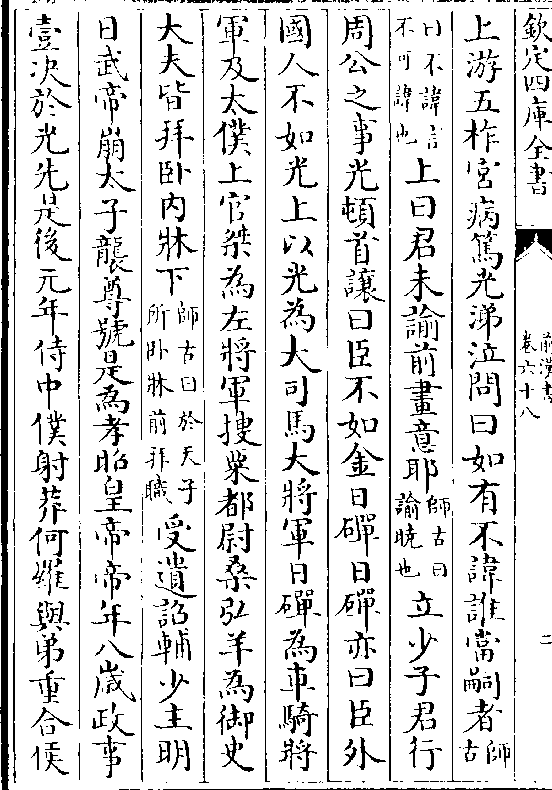 欽定四庫全書
前漢書
卷六十八
二
上游五柞宮病篤光涕泣問曰如有不諱誰當嗣者師古
曰不諱言不可諱也上曰君未諭前畫意耶師古曰諭曉也立少子君行
周公之事光頓首讓曰臣不如金日磾日磾亦曰臣外
國人不如光上以光為大司馬大將軍日磾為車騎將
軍及太僕上官桀為左將軍搜粟都尉桑弘羊為御史
大夫皆拜卧内牀下師古曰於天子所卧牀前拜職受遺詔輔少主明
日武帝崩太子襲尊號是為孝昭皇帝帝年八歲政事
壹決於光先是後元年侍中僕射莽何羅與弟重合侯